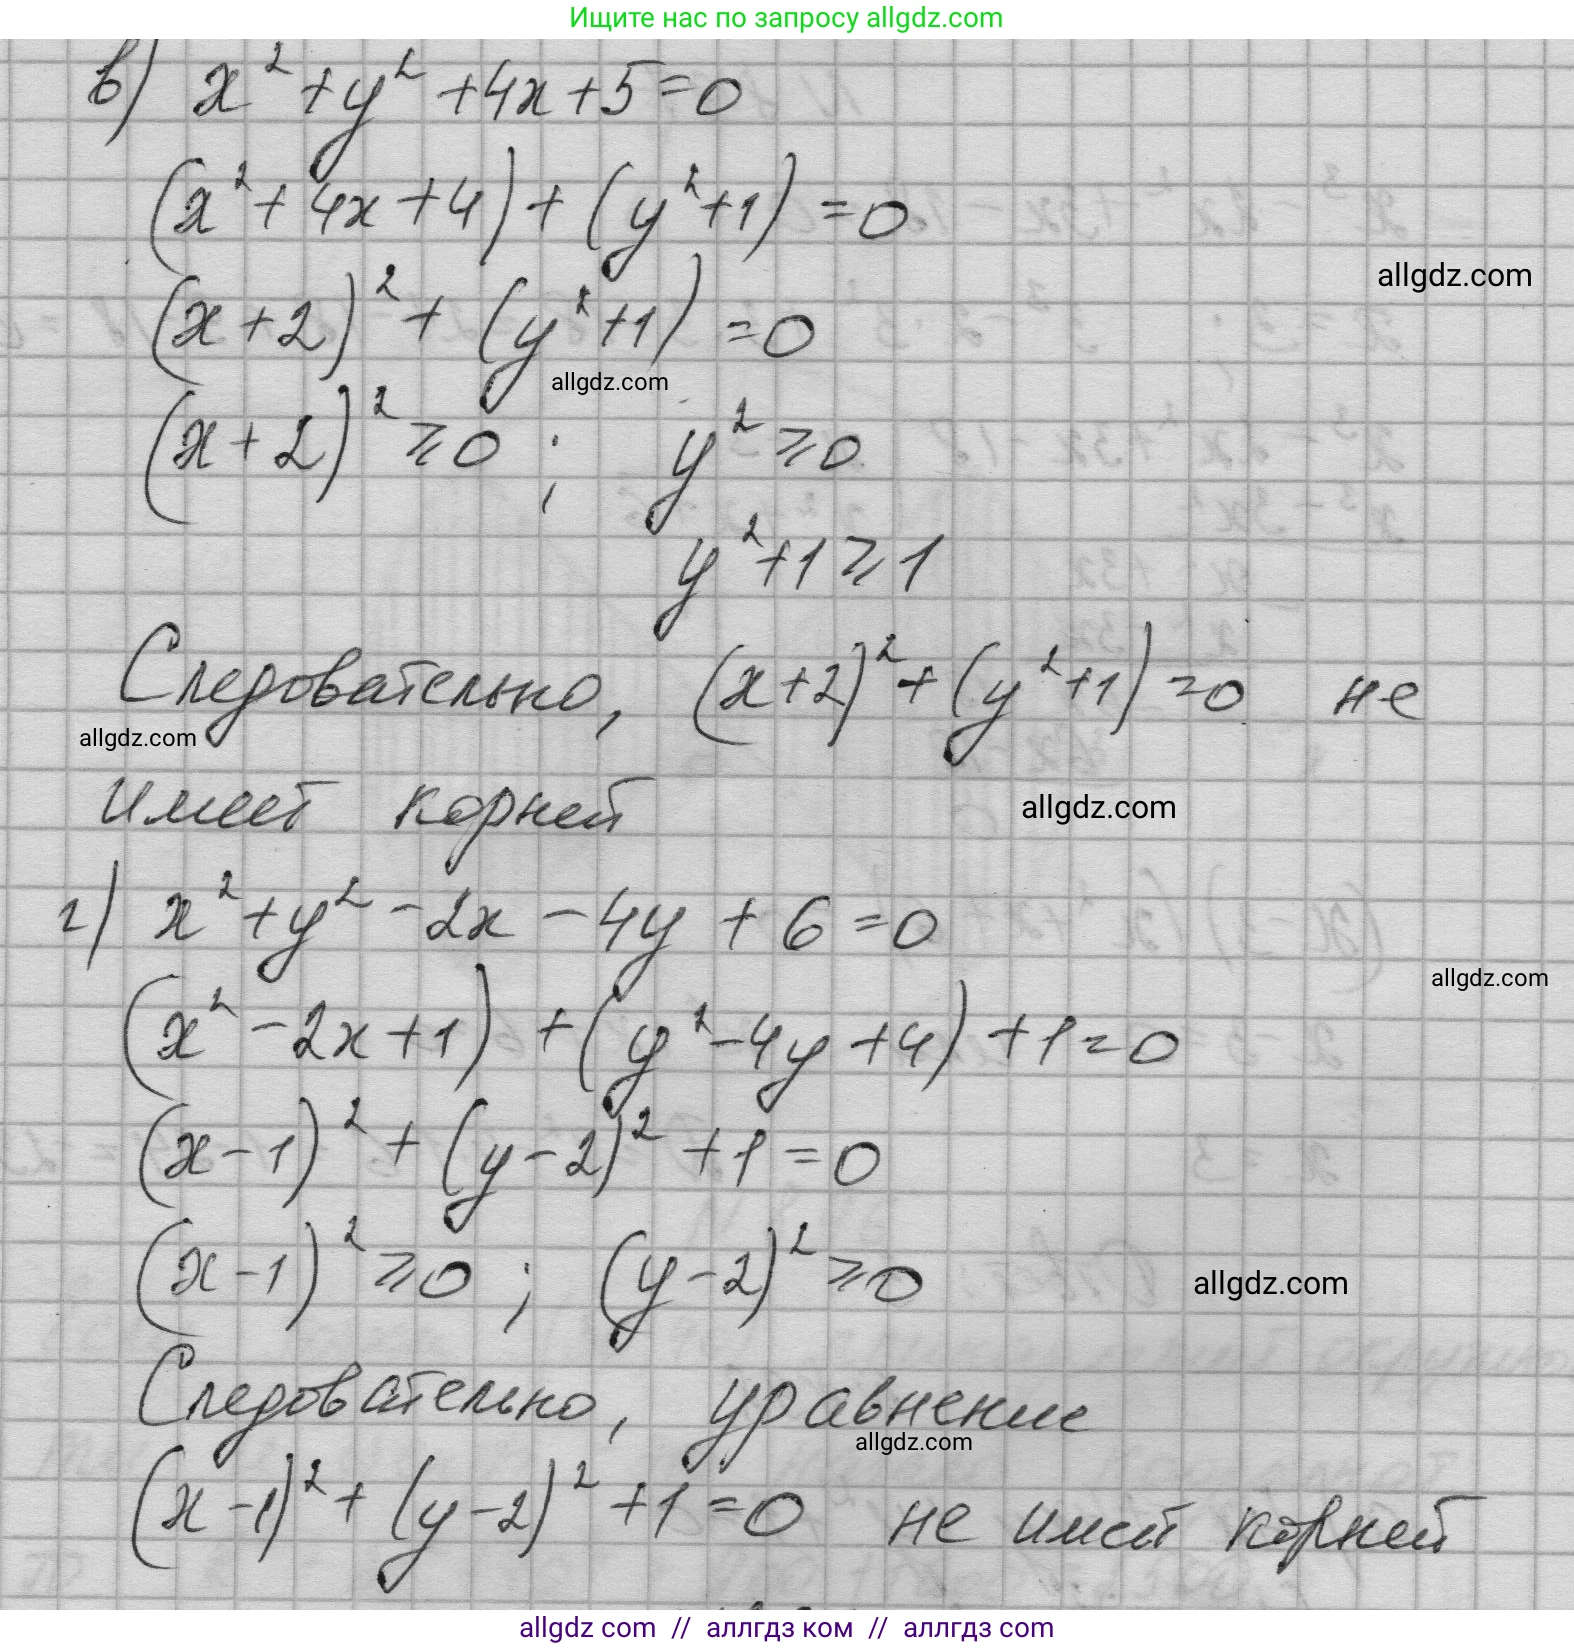 Ищите нас по запросу allgdz.com
в) x² + y² + 4x + 5 = 0
(x² + 4x + 4) + (y² + 1) = 0
allgdz.com
(x + 2)² + (y² + 1) = 0
allgdz.com
(x + 2)² ⩾ 0 ; y² ⩾ 0
y² + 1 ⩾ 1
Следовательно, (x + 2)² + (y² + 1) = 0 не
allgdz.com
имеет корней
allgdz.com
г) x² + y² - 2x - 4y + 6 = 0
allgdz.com
(x² - 2x + 1) + (y² - 4y + 4) + 1 = 0
(x - 1)² + (y - 2)² + 1 = 0
(x - 1)² ⩾ 0 ; (y - 2)² ⩾ 0
allgdz.com
Следовательно, уравнение
allgdz.com
(x - 1)² + (y - 2)² + 1 = 0 не имеет корней
allgdz.com // аллгдз ком // аллгдз com